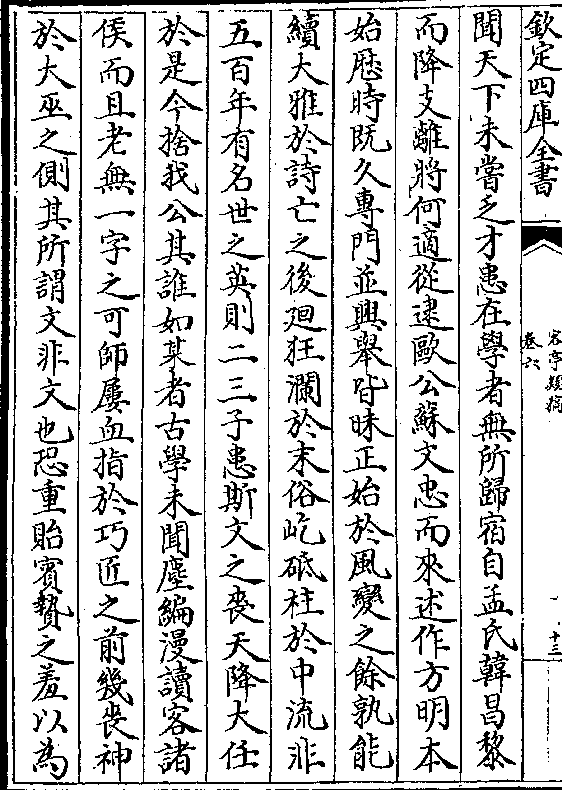 欽定四庫全書
客亭類稿
卷六
十三
聞天下未嘗乏才患在學者無所歸宿自孟氏韓昌黎
而降支離將何適從逮歐公蘇文忠而來述作方明本
始歷時既久專門並興舉皆昧正始於風變之餘孰能
續大雅於詩亡之後廻狂瀾於末俗屹砥柱於中流非
五百年有名世之英則二三子患斯文之喪天降大任
於是今捨我公其誰如某者古學未聞塵編漫讀客諸
侯而且老無一字之可師屢血指於巧匠之前幾喪神
於大巫之側其所謂文非文也恐重貽賓贄之羞以為